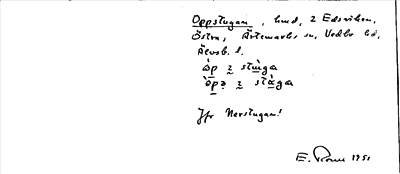 Oppstugan, hmd, 2 Edsviken,
Östra, Ärtemarks sn, Vedbo hd,
Älvsb. l.
òp 2 stùga
òpə 2 stàga
Jfr Nerstugan!
E. 1951